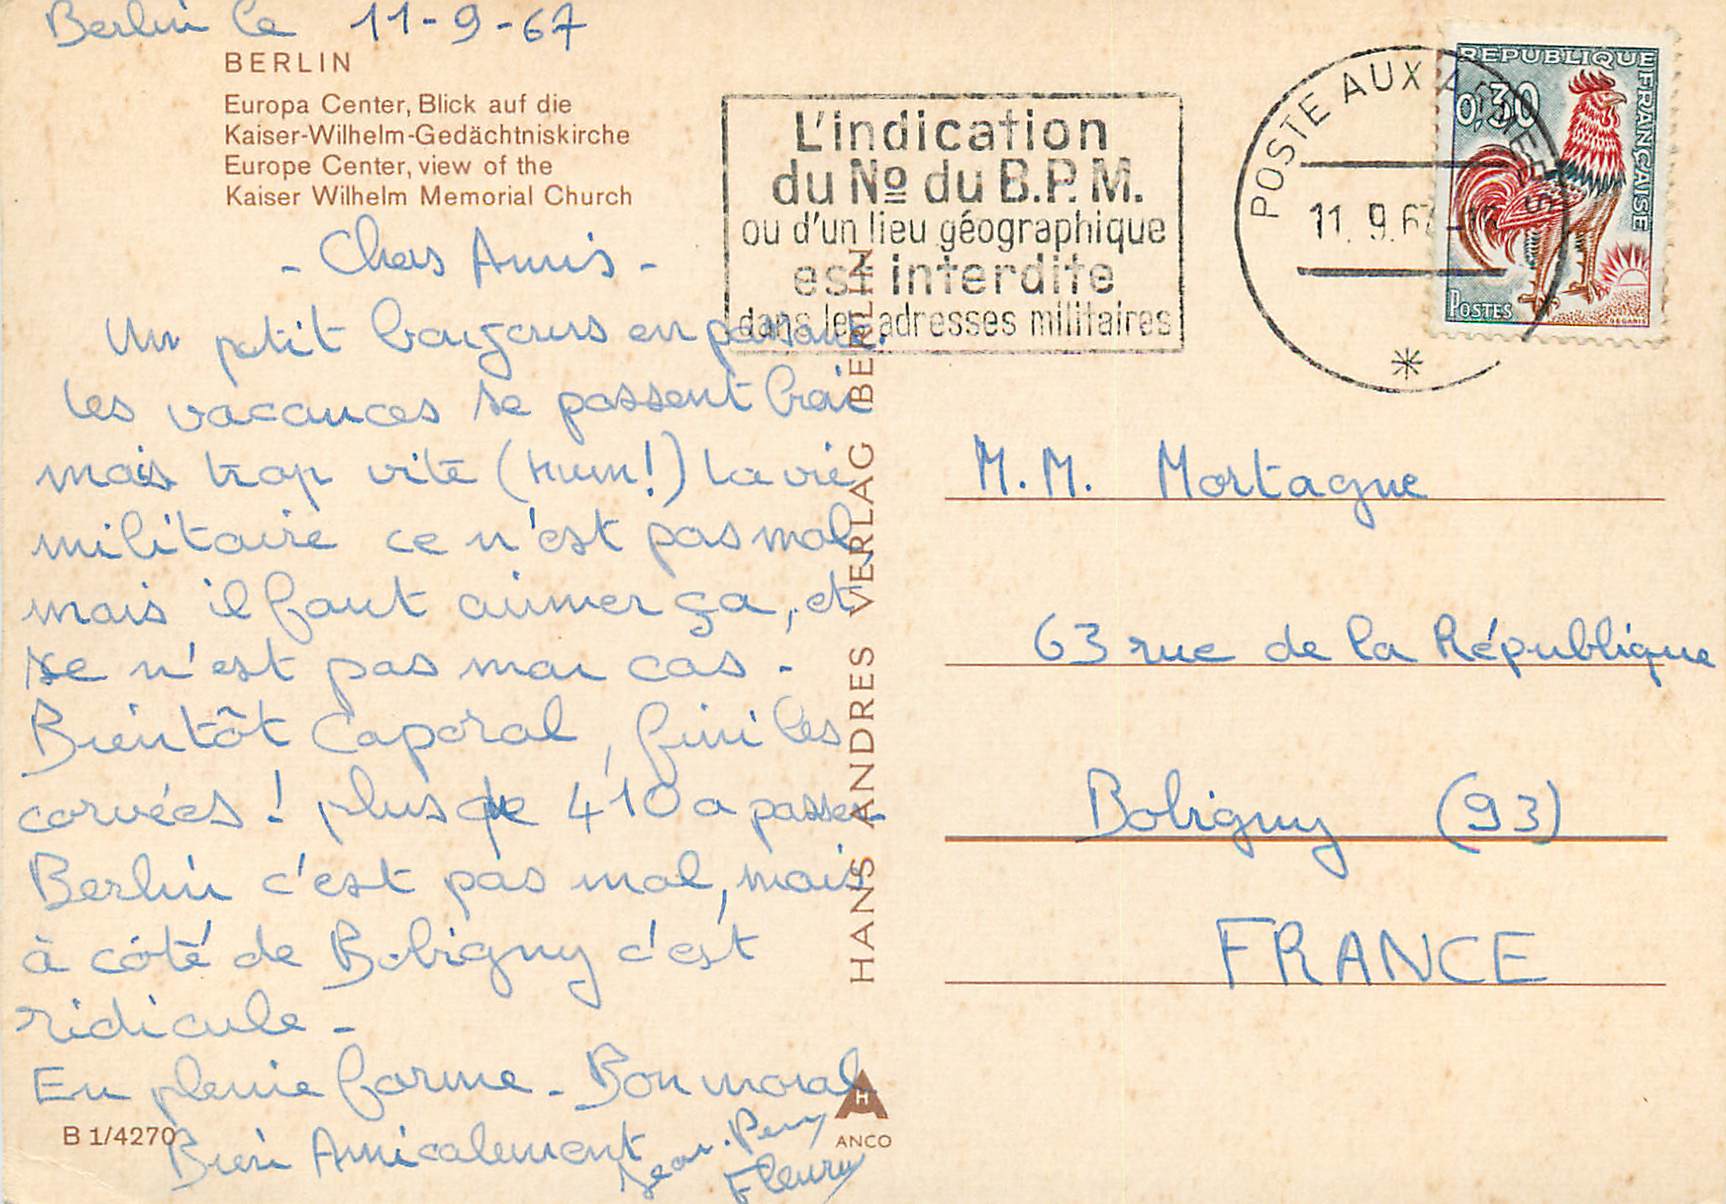 Berlin le 11-9-67
BERLIN
Europa Center, Blick auf die
Kaiser-Wilhelm-Gedächtniskirche
Europe Center, view of the
Kaiser Wilhelm Memorial Church
- Chers Amis -
Un petit bonjours en passant.
les vacances se passent bien
mais trop vite (hum!) La vie
militaire ce n'est pas mal,
mais il faut aimer ça, et
ce n'est pas mon cas -
Bientôt Caporal, fini les
corvées ! plus que 410 a passer
Berlin c'est pas mal, mais
à côté de Bobigny c'est
ridicule -
En pleine forme - Bon moral
Bien Amicalement
Jean-Pierre
Fleury
B 1/4270
HANS ANDRES VERLAG BERLIN
H
ANCO
L'indication
du No du B.P.M.
ou d'un lieu géographique
est interdite
dans les adresses militaires
POSTE AUX ARMEES
11. 9. 67
REPUBLIQUE FRANÇAISE
0,30
POSTES
M.M. Mortagne
63 rue de la République
Bobigny (93)
FRANCE